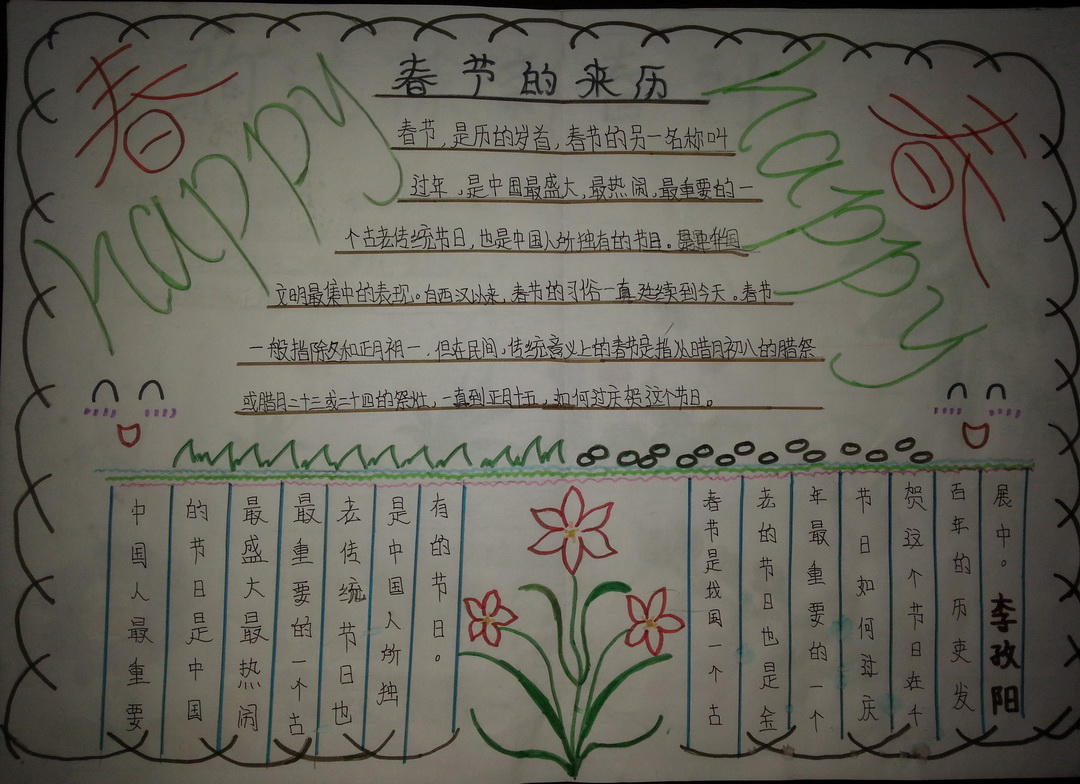 春
happy
春节的来历
happy
春
春节,是历的岁首,春节的另一名称叫
过年,是中国最盛大,最热闹,最重要的一
个古老传统节日,也是中国人所独有的节日。是中华国
文明最集中的表现。自西汉以来,春节的习俗一直延续到今天。春节
一般指除夕和正月初一,但在民间,传统意义上的春节是指从腊月初八的腊祭
或腊月二十三或二十四的祭灶,一直到正月十五,如何过庆贺这个节日。
中国人最重要
的节日是中国
最盛大最热闹
最重要的一个古
老传统节日也
是中国人所独
有的节日。
春节是我国一个古
老的节日也是金
年最重要的一个
节日如何过庆
贺这个节日在千
百年的历史发
展中。李孜阳